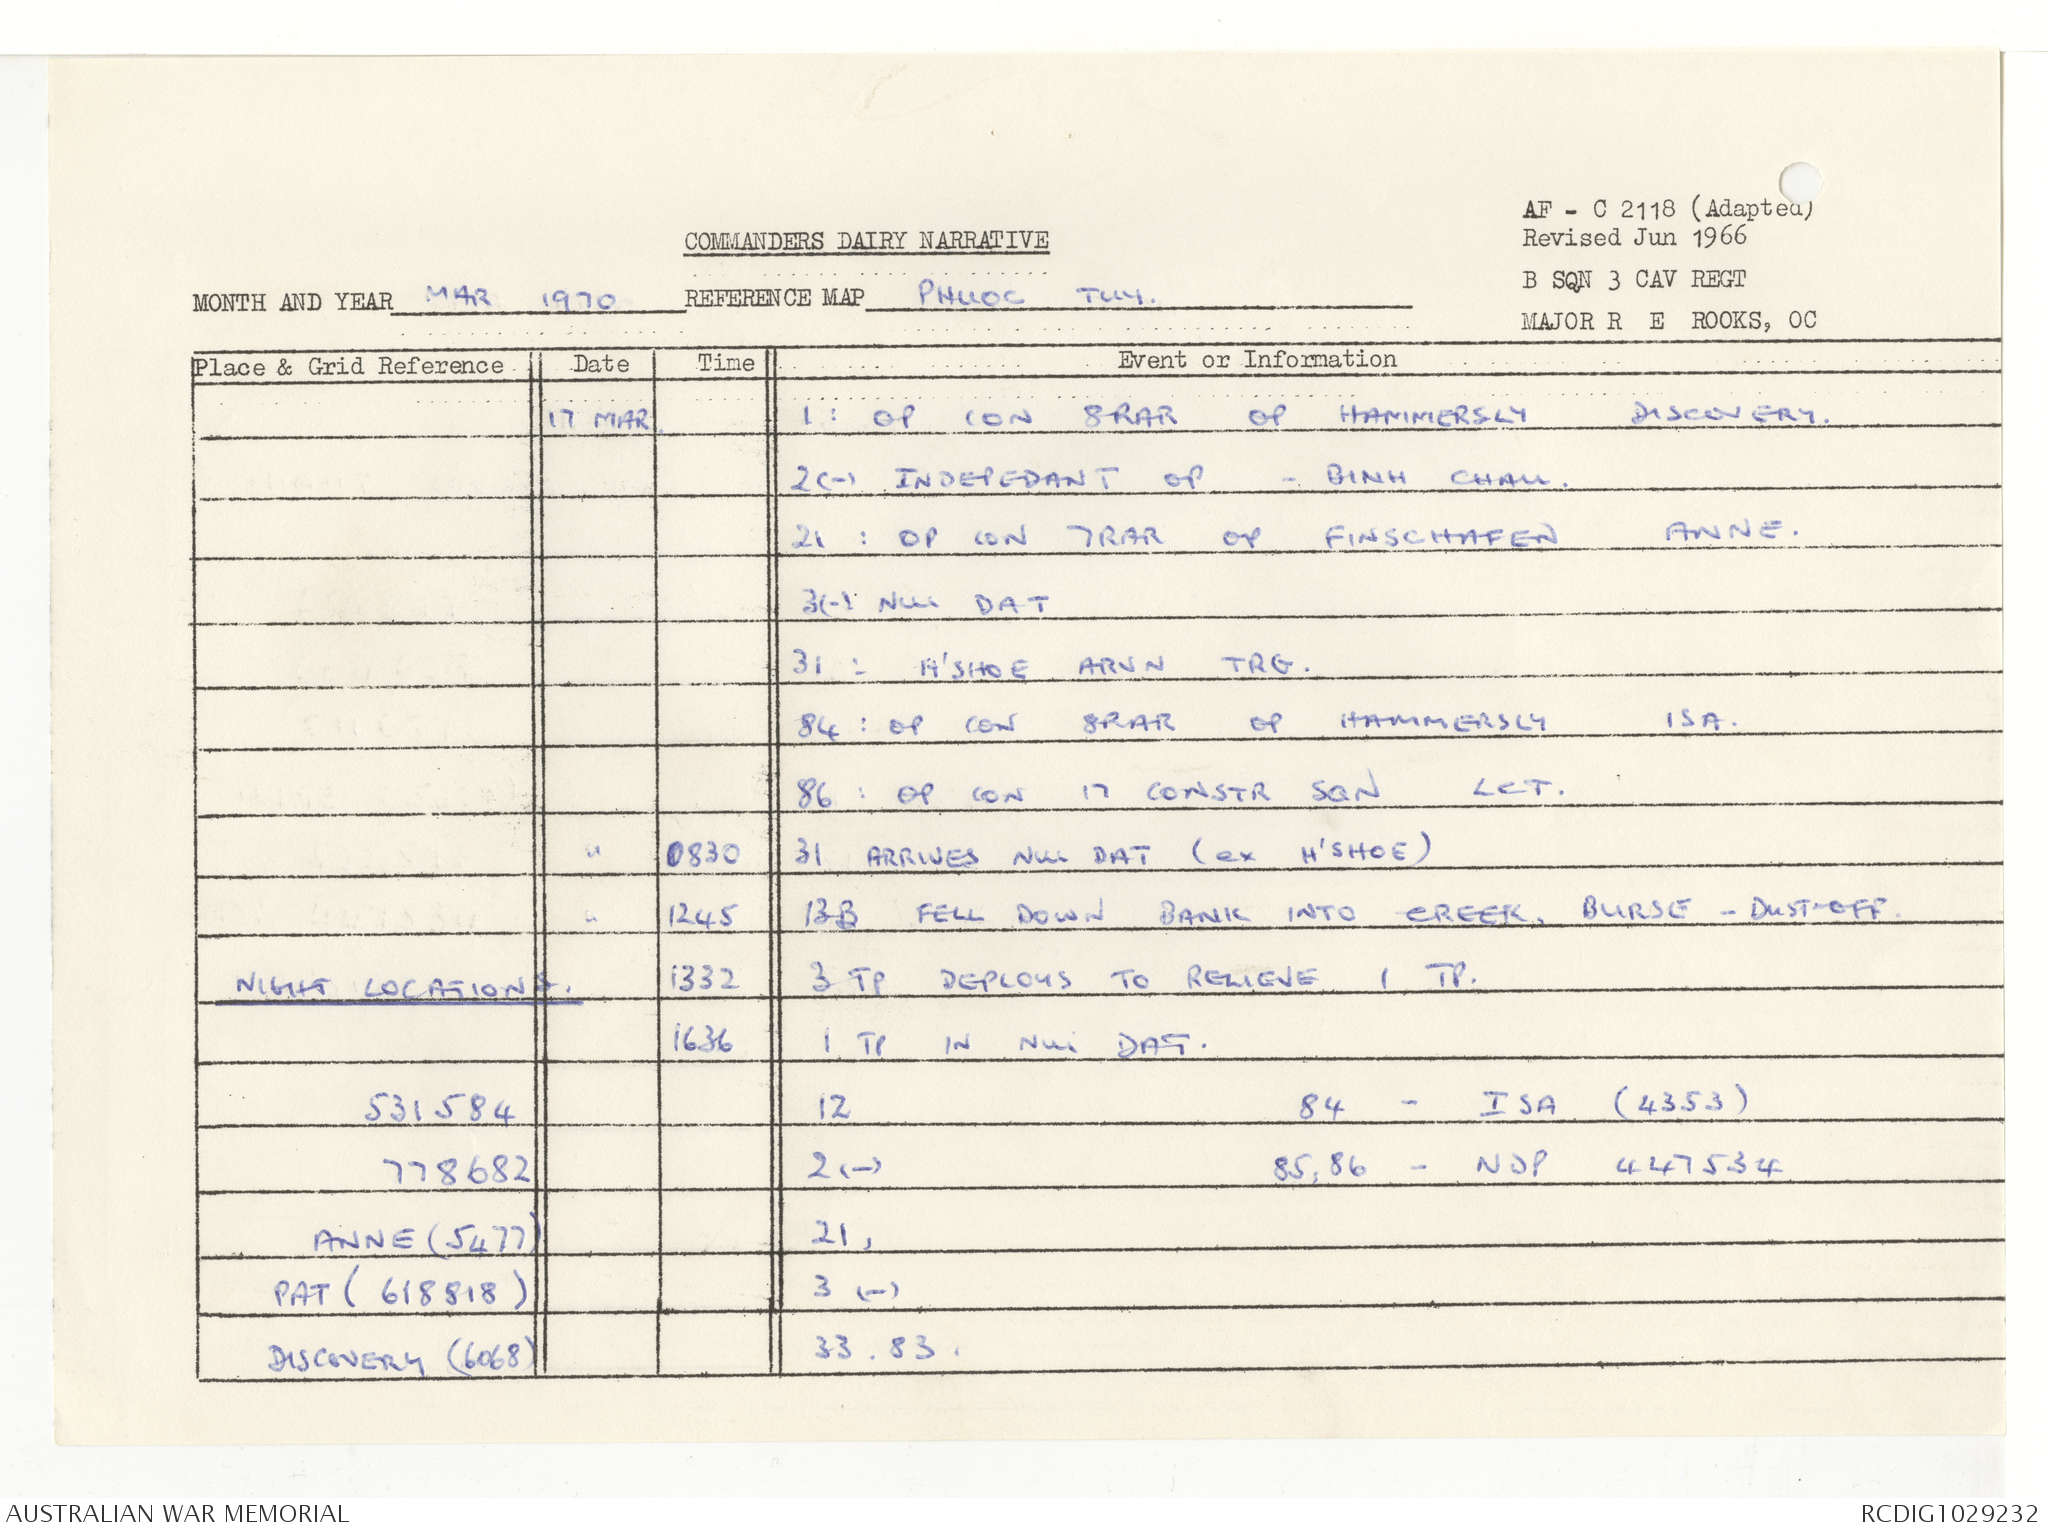 AF - C 2118 (Adapted)
Revised Jun 1966
COMMANDERS DAIRY NARRATIVE
B SQN 3 CAV REGT
MONTH AND YEAR MAR 1970 REFERENCE MAP PHUOC TUY.
MAJOR R E ROOKS, OC
Place & Grid Reference Date Time Event or Information
17 MAR. 1: OP CON 8RAR OP HAMMERSLY DISCOVERY.
2(-) INDEPEDANT OP - BINH CHAU.
21 : OP CON 7RAR OP FINSCHAFEN ANNE.
3(-): NUI DAT
31 : H'SHOE ARVN TRG.
84 : OP CON 8RAR OP HAMMERSLY ISA.
86 : OP CON 17 CONSTR SQN LCT.
" 0830 31 ARRIVES NUI DAT (ex H'SHOE)
" 1245 13B FELL DOWN BANK INTO CREEK. BURSE - DUST-OFF.
NIGHT LOCATIONS. 1332 3 TP DEPLOYS TO RELIEVE 1 TP.
1636 1 TP IN NUI DAT.
531584 12 84 - ISA (4353)
778682 2(-) 85,86 - NDP 447534
ANNE (5477) 21,
PAT ( 618818 ) 3 (-)
DISCOVERY (6068) 33. 83.
AUSTRALIAN WAR MEMORIAL RCDIG1029232